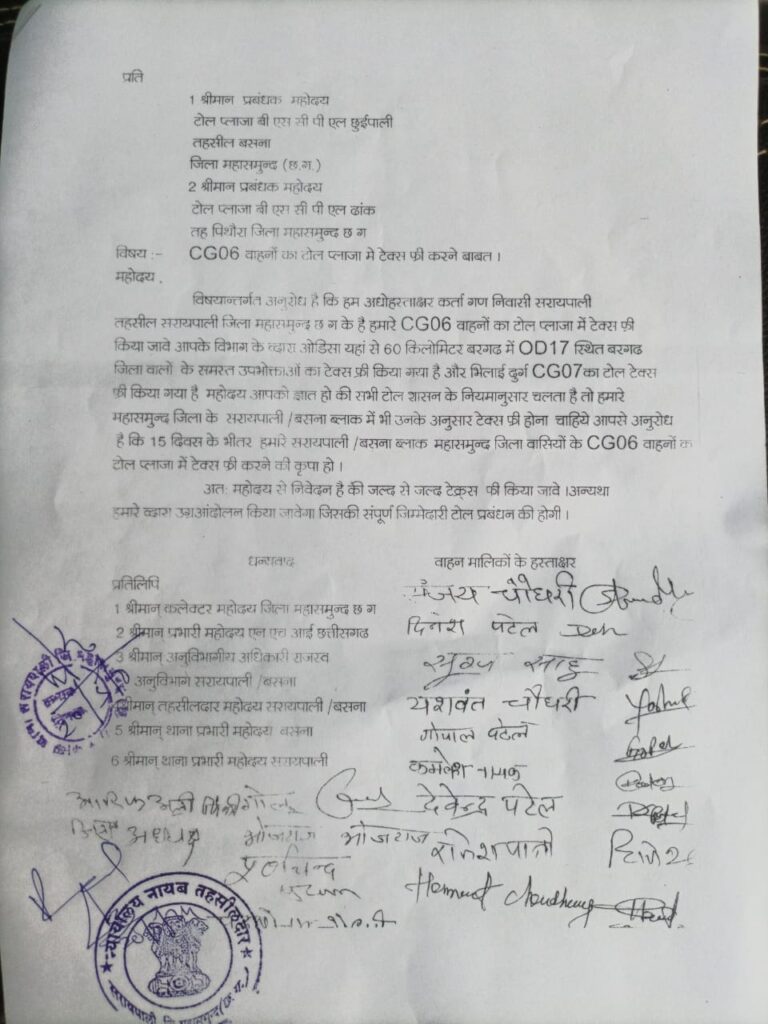 प्रति
1 श्रीमान प्रबंधक महोदय
टोल प्लाजा बी एस सी पी एल छुईपाली
तहसील बसना
जिला महासमुन्द (छ.ग.)
2 श्रीमान प्रबंधक महोदय
टोल प्लाजा बी एस सी पी एल ढांक
तह पिथौरा जिला महासमुन्द छ ग
विषय :- CG06 वाहनों का टोल प्लाजा मे टेक्स फ्री करने बाबत ।
महोदय ,
विषयान्तर्गत अनुरोध है कि हम अधोहस्ताक्षर कर्ता गण निवासी सरायपाली
तहसील सरायपाली जिला महासमुन्द छ ग के है हमारे CG06 वाहनों का टोल प्लाजा में टेक्स फ्री
किया जावे आपके विभाग के व्दारा ओडिसा यहां से 60 किलोमिटर बरगढ में OD17 स्थित बरगढ
जिला वालो के समस्त उपभोक्ताओं का टेक्स फ्री किया गया है और भिलाई दुर्ग CG07 का टोल टेक्स
फ्री किया गया है महोदय आपको ज्ञात हो की सभी टोल शासन के नियमानुसार चलता है तो हमारे
महासमुन्द जिला के सरायपाली /बसना ब्लाक में भी उनके अनुसार टेक्स फ्री होना चाहिये आपसे अनुरोध
है कि 15 दिवस के भीतर हमारे सरायपाली /बसना ब्लाक महासमुन्द जिला वासियों के CG06 वाहनों का
टोल प्लाजा में टेक्स फ्री करने की कृपा हो ।
अतः महोदय से निवेदन है की जल्द से जल्द टेक्र्स फ्री किया जावे ।अन्यथा
हमारे व्दारा उग्रआंदोलन किया जावेगा जिसकी संपूर्ण जिम्मेदारी टोल प्रबंधन की होगी ।
धन्यवाद वाहन मालिकों के हस्ताक्षर
प्रतिलिपि
1 श्रीमान् कलेक्टर महोदय जिला महासमुन्द छ ग चौधरी
2 श्रीमान प्रभारी महोदय एन एच आई छत्तीसगढ दिनेश पटेल
3 श्रीमान अनुविभागीय अधिकारी राजस्व साहु
अनुविभाग सरायपाली /बसना
श्रीमान् तहसीलदार महोदय सरायपाली /बसना यशवंत चौधरी
5 श्रीमान् थाना प्रभारी महोदय बसना गोपाल पटेल
6 श्रीमान् थाना प्रभारी महोदय सरायपाली
देवेन्द्र पटेल
भोजराज भोजराज
Hemant Choudhary
न्यायालय नायब तहसीलदार
सरायपाली